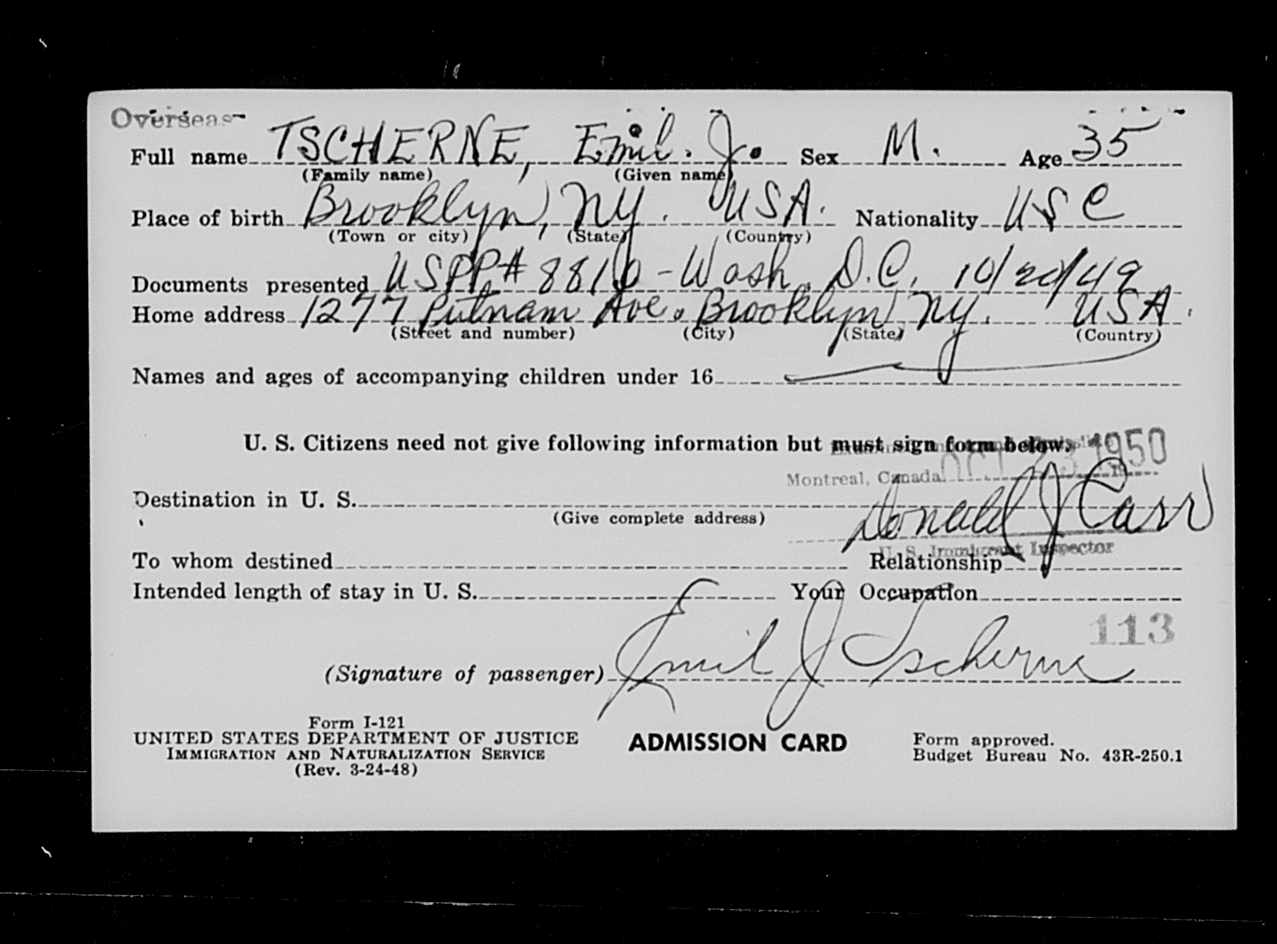 Overseas
Full name TSCHERNE, Emil. J. Sex M. Age 35
(Family name) (Given name)
Place of birth Brooklyn, NY. USA. Nationality USC
(Town or city) (State) (Country)
Documents presented USPP# 8810 - Wash. D.C. 10/20/49
Home address 1277 Putnam Ave. Brooklyn NY. USA.
(Street and number) (City) (State) (Country)
Names and ages of accompanying children under 16
U. S. Citizens need not give following information but must sign form below.
OCT 23 1950
Montreal, Canada
Destination in U. S.
(Give complete address)
Donald J Carr
U. S. Immigrant Inspector
To whom destined Relationship
Intended length of stay in U. S. Your Occupation
113
(Signature of passenger) Emil J Tscherne
Form I-121
UNITED STATES DEPARTMENT OF JUSTICE
IMMIGRATION AND NATURALIZATION SERVICE
(Rev. 3-24-48)
ADMISSION CARD
Form approved.
Budget Bureau No. 43R-250.1